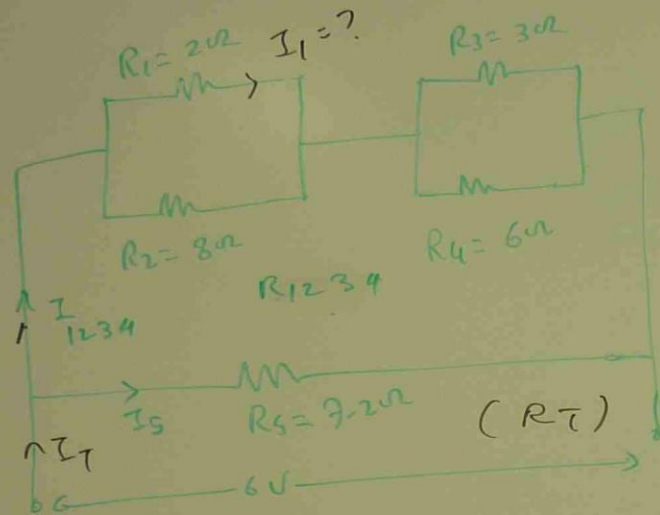 R1 = 2Ω I1 = ?
R3 = 3Ω
R2 = 8Ω
R4 = 6Ω
R1234
I1234
I5
R5 = 7.2Ω
(RT)
IT
6V